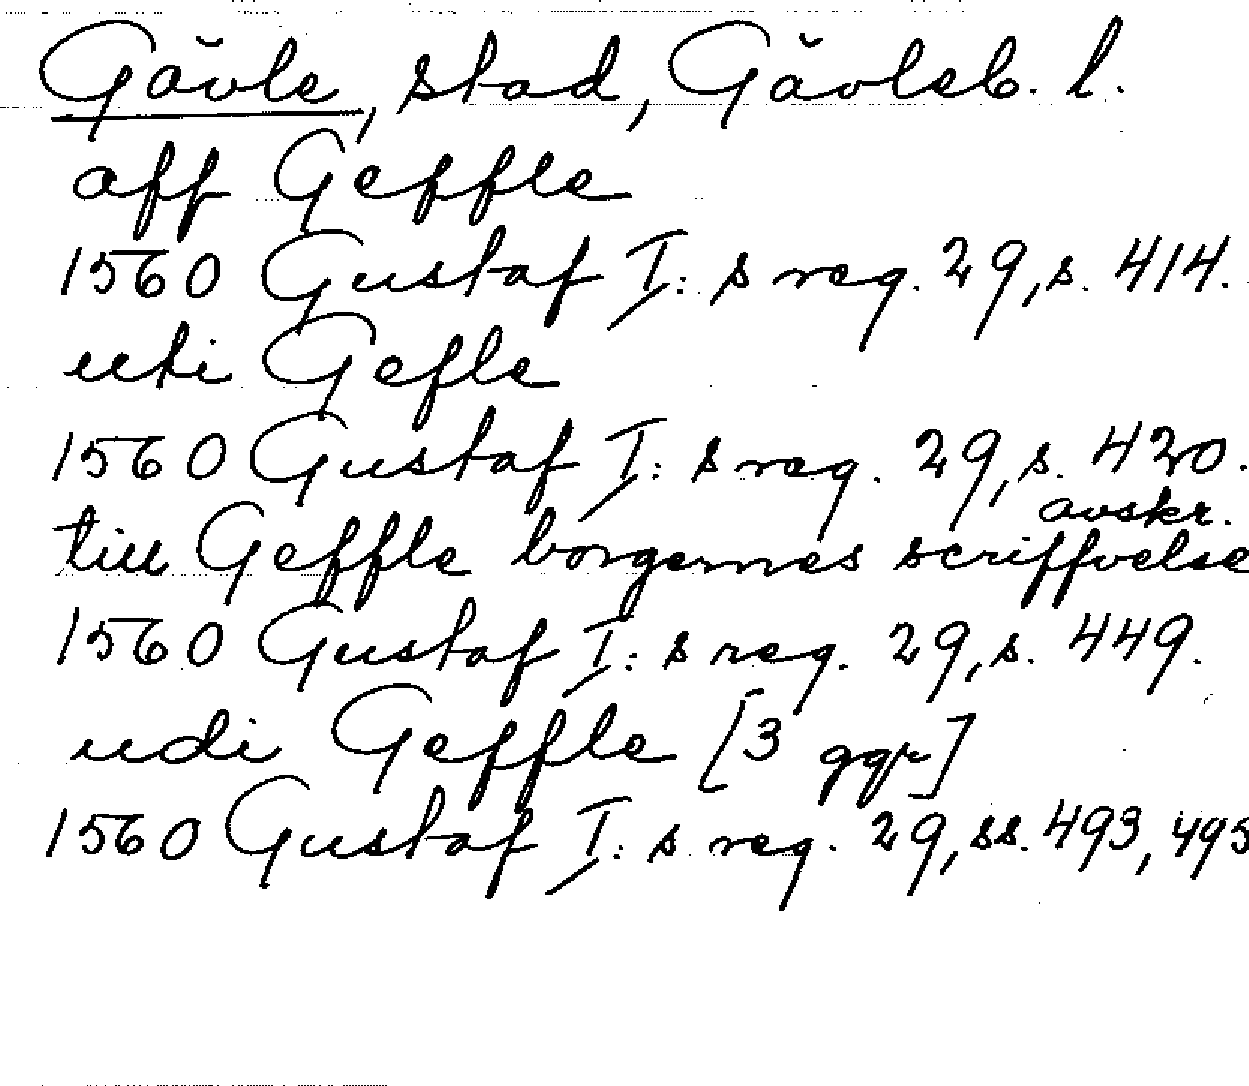 Gävle, stad, Gävleb. l.
aff Geffle
1560 Gustaf I: s reg. 29, s. 414.
uti Gefle
1560 Gustaf I: s reg. 29, s. 420.
avskr.
till Geffle borgernes scriffvelse
1560 Gustaf I: s reg. 29, s. 449.
udi Geffle [3 ggr]
1560 Gustaf I: s reg. 29, ss. 493, 495